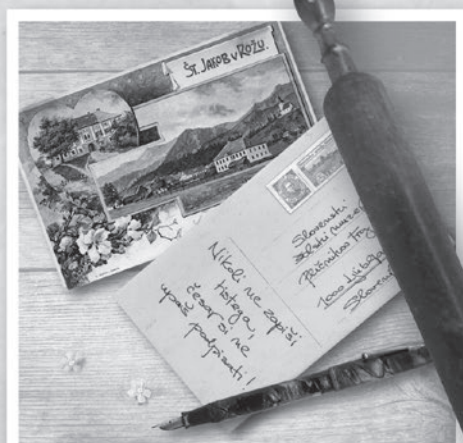 ŠT. JAKOB V ROŽU.
Nikoli ne zapiši
tistega,
česar si ne
upaš podpisati!
Slovenski
šolski muzej
Plečnikov trg
1000 Ljubljana
Slovenija